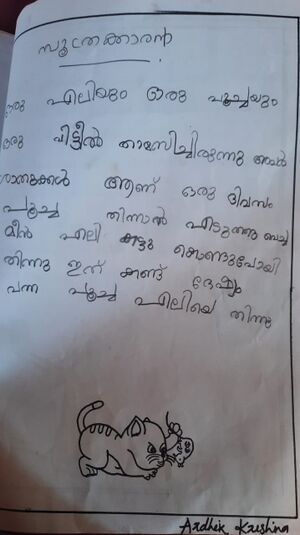 സൂത്രക്കാരൻ
ഒരു എലിയും ഒരു പൂച്ചയും
ഒരു വീട്ടിൽ താമസിച്ചിരുന്നു അവർ
ശത്രുക്കൾ ആണ് ഒരു ദിവസം
പൂച്ച തിന്നാൻ എടുത്തു വെച്ച
മീൻ എലി കട്ടു കൊണ്ടുപോയി
തിന്നു ഇത് കണ്ട് ദേഷ്യം
വന്ന പൂച്ച എലിയെ തിന്നു
Ardhik Krishna